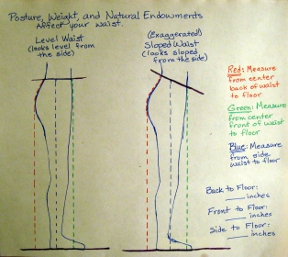 Posture, Weight, and Natural Endowments
Affect your waist.
Level Waist
(looks level from
the side)
(Exaggerated)
Sloped Waist
(looks sloped
from the side)
Red: Measure
from center
back of waist
to floor
Green: Measure
from center
front of waist
to floor
Blue: Measure
from side
waist to floor
Back to Floor:
____ inches
Front to Floor:
____ inches
Side to Floor:
____ inches